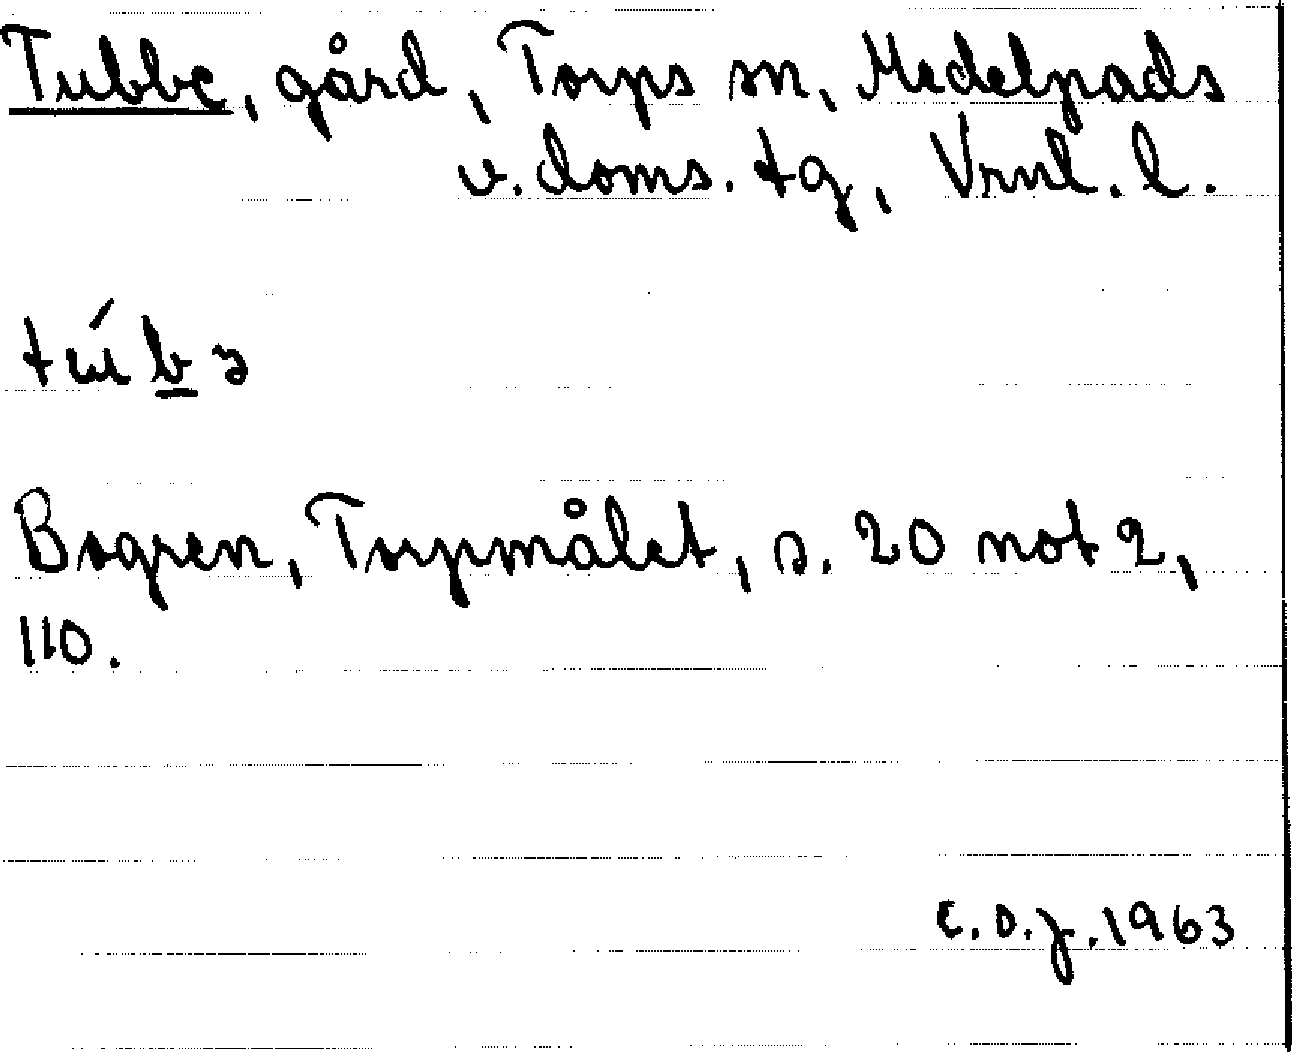 Tubbe, gård, Torps sn, Medelpads
v. doms. tg, Vrnl. l.
túbə
Bogren, Torpmålet, s. 20 not 2,
110.
C.O.J. 1963